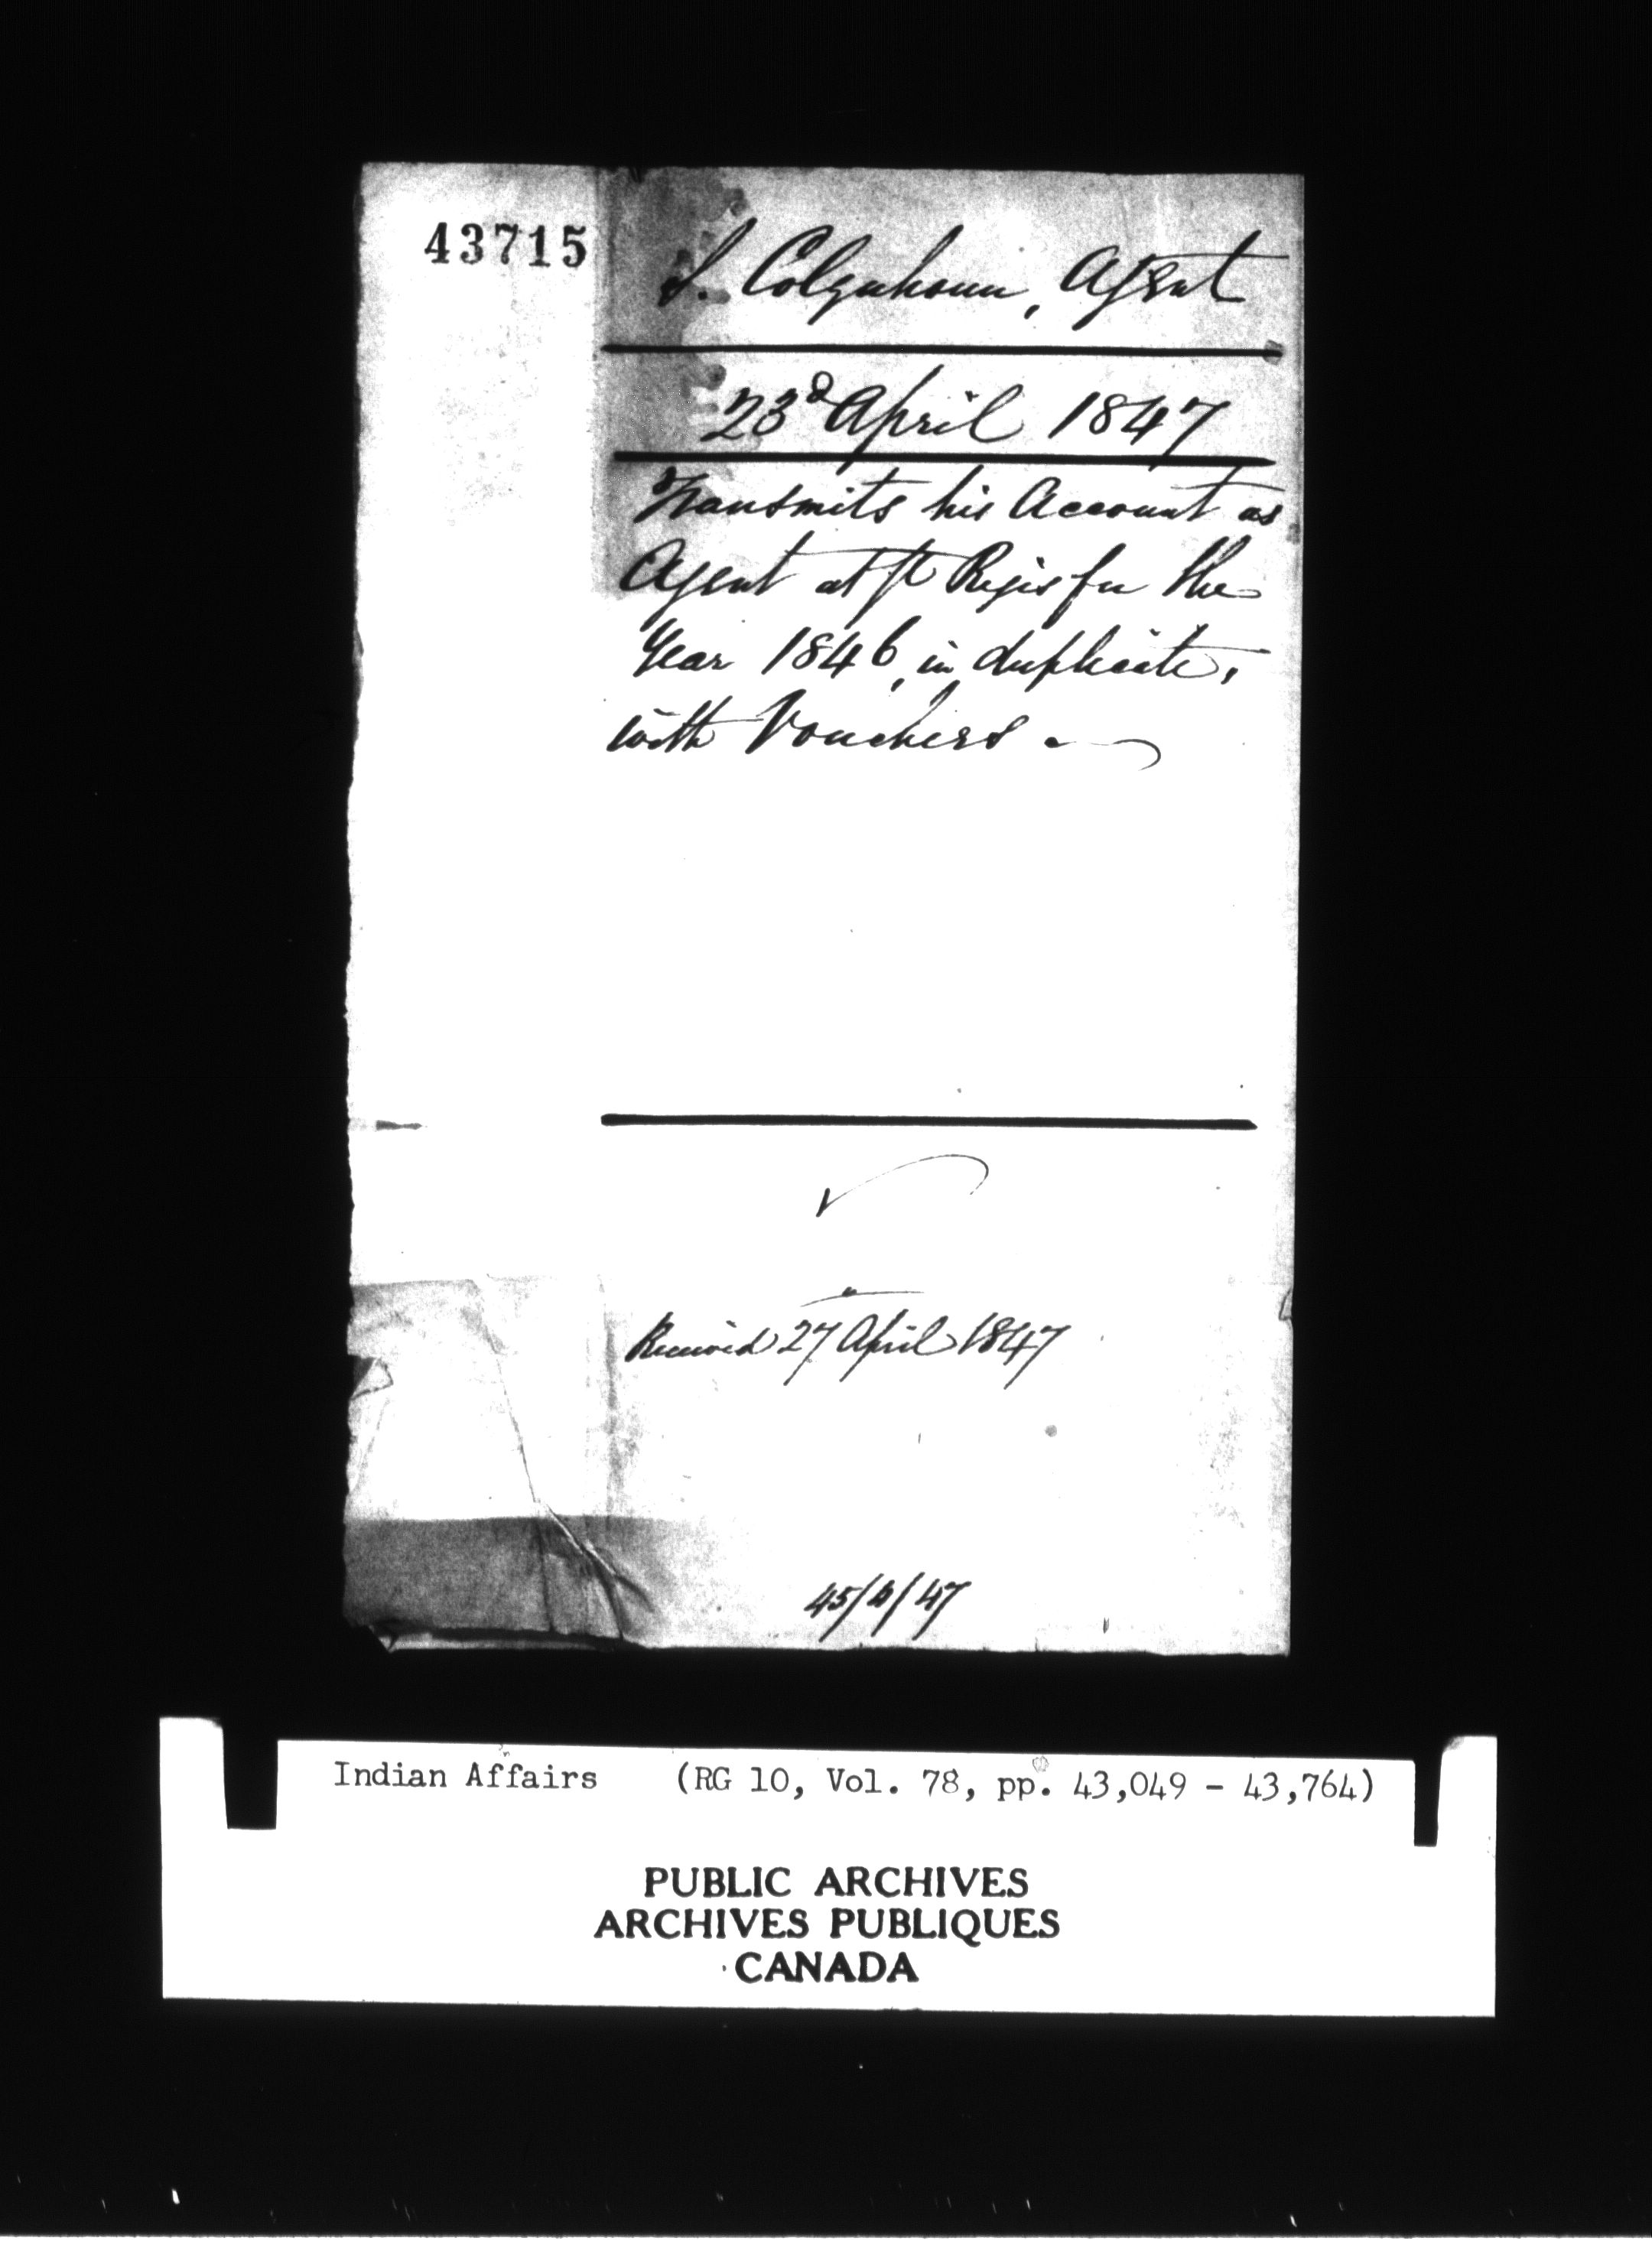 43715
S. Colquhoun, Agent
23d April 1847
Transmits his Account as
Agent at St Regis for the
Year 1846, in duplicate,
with Vouchers.
Received 27 April 1847
45/6/47
Indian Affairs (RG 10, Vol. 78, pp. 43,049 - 43,764)
PUBLIC ARCHIVES
ARCHIVES PUBLIQUES
CANADA